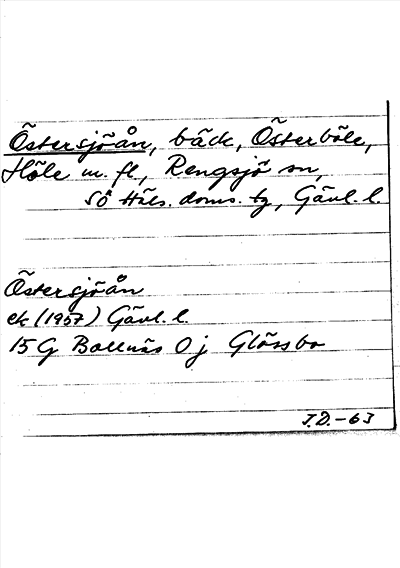 Östersjöån, bäck, Österböle,
Höle m. fl., Rengsjö sn,
Sö Häls. doms. tg, Gävl. l.
Östersjöån
ek (1957) Gävl. l.
15 G Bollnäs 0 j Glössbo
J.D.-63